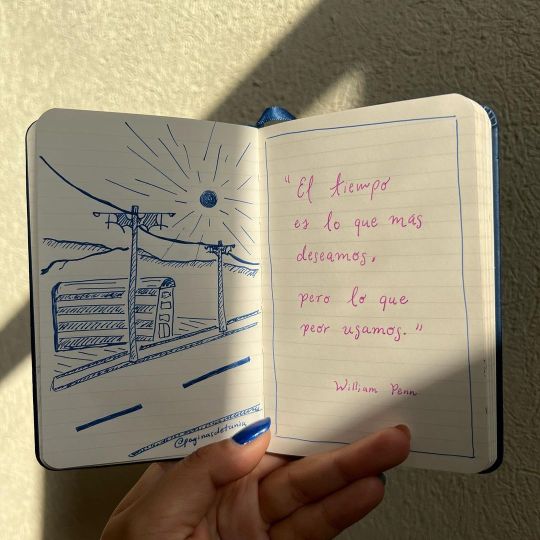 @paginasdetunia
"El tiempo
es lo que mas
deseamos,
pero lo que
peor usamos."
William Penn